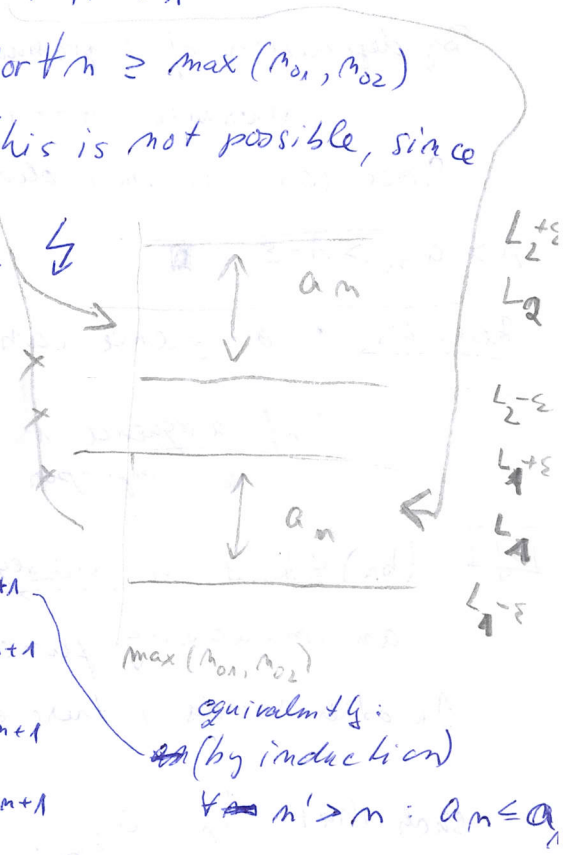 or ∀n ≥ max(n₀₁, n₀₂)
his is not possible, since
L₂+ε
aₙ
L₂
L₂-ε
L₁+ε
aₙ
L₁
L₁-ε
+1
+1
max(n₀₁, n₀₂)
equivalently:
n+1
(by induction)
n+1
∀ n' > n : aₙ ≤ a